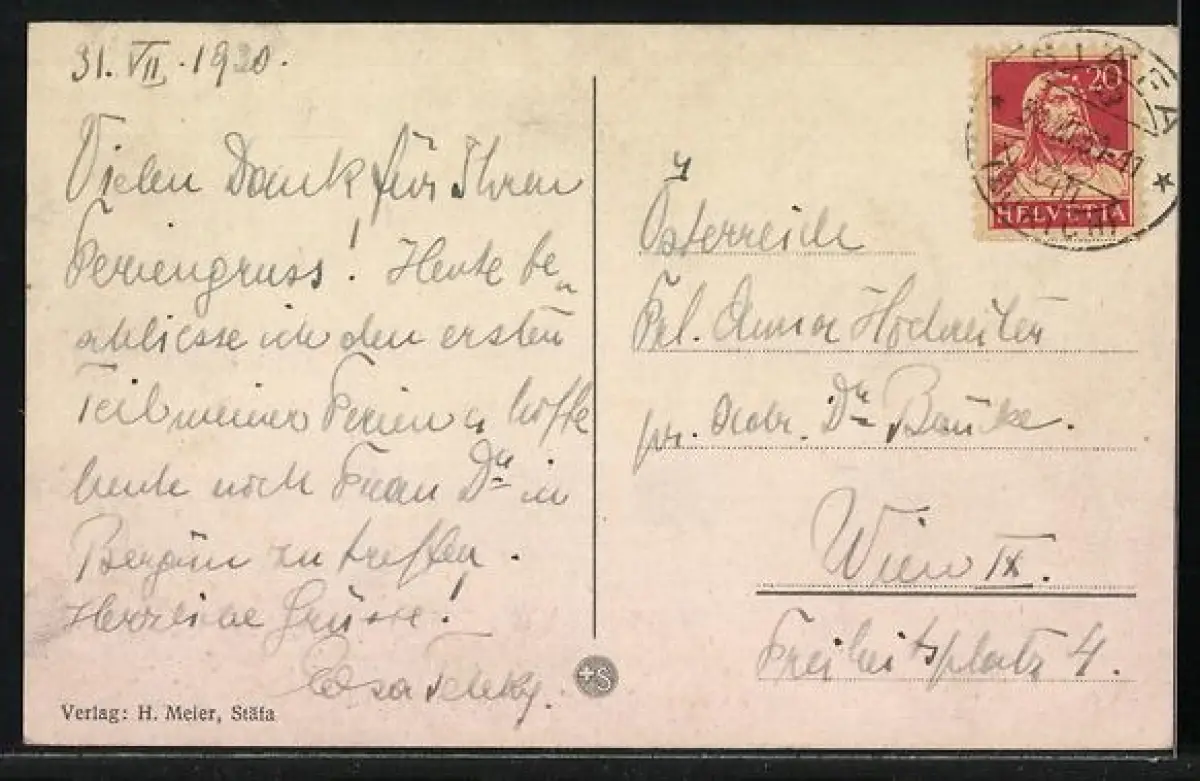 31. VII. 1920.
Vielen Dank für Ihren
Feriengruss! Heute be-
schliesse ich den ersten
Teil meiner Ferien u hoffe
heute noch Frau Dr in
Bergün zu treffen.
Herzliche Grüsse!
Verlag: H. Meier, Stäfa
+S
20
HELVETIA
STÄFA
Österreich
Frl. Anna
pr. Adr. Dr
Wien IX.
Freiheitsplatz 4.